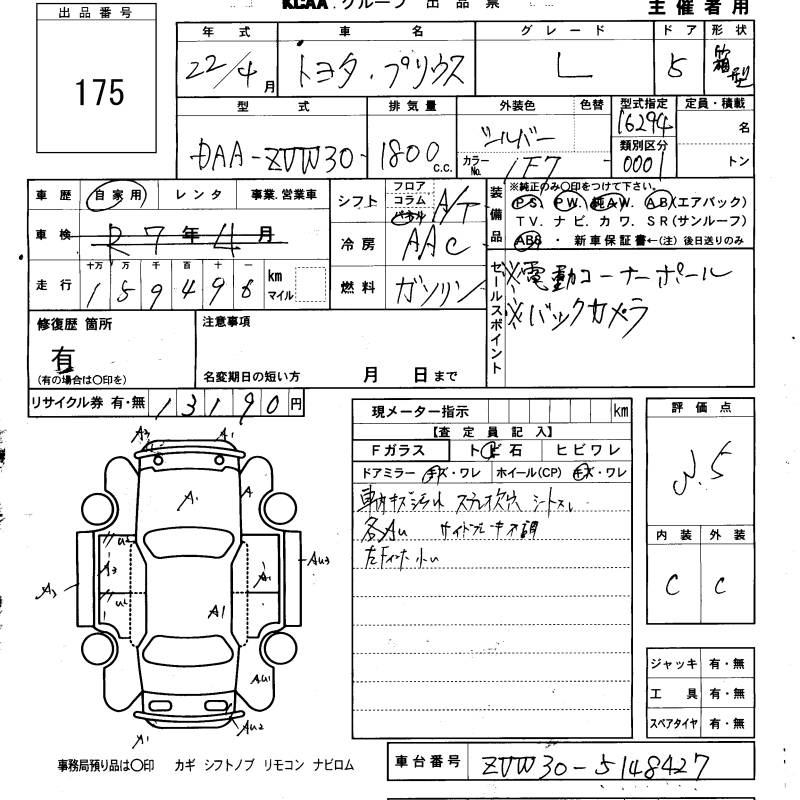 KCAA.グループ 出品票
主催者用
出品番号
175
年式 車名 グレード ドア 形状
22/4月 トヨタ・プリウス L 5 箱型
型式 排気量 外装色 色替 型式指定 定員・積載
DAA-ZVW30- 1800c.c. シルバー 16294 名
カラーNo. 1F7 類別区分 0001 トン
車歴 自家用 レンタ 事業.営業車
車検 R7年4月
走行 十万 万 千 百 十 一
159498 km マイル
シフト フロア コラム パネル A/T
冷房 AAC
燃料 ガソリン
装備品
※純正のみ〇印をつけて下さい。
PS. PW. 純AW. AB(エアバック)
TV. ナビ. カワ. SR(サンルーフ)
ABS ・ 新車保証書←(注) 後日送りのみ
セールスポイント
※電動コーナーポール
※バックカメラ
修復歴 箇所
有
(有の場合は〇印を)
注意事項
名変期日の短い方 月 日まで
リサイクル券 有・無 13190円
現メーター指示 km
【査定員記入】
Fガラス トビ石 ヒビワレ
ドアミラー キズ・ワレ ホイール(CP) キズ・ワレ
シートスレ
各AU サイドブレーキ
評価点
3.5
内装 外装
C C
A3 A1
A1 A
U2 A3 U2
A3 A1 AU3
A1
AU1
AU2
A1
ジャッキ 有・無
工具 有・無
スペアタイヤ 有・無
事務局預り品は〇印 カギ シフトノブ リモコン ナビロム
車台番号 ZVW30-5148427